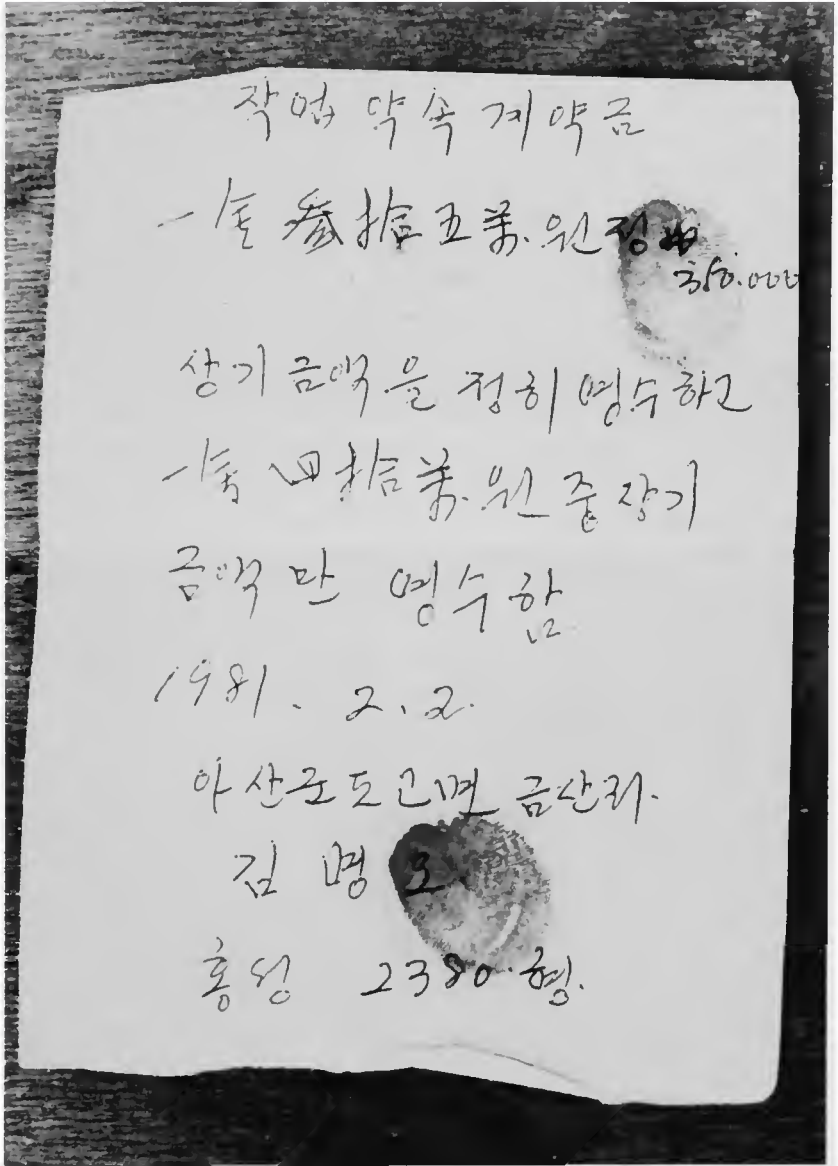 작업 약속 계약금
一金 參拾五萬.원정
350.000
상기 금액을 정히 영수하고
一金 四拾萬.원 중 상기
금액만 영수함
1981. 2. 2.
아산군 도고면 금산리.
김명오
홍성 2380.형.